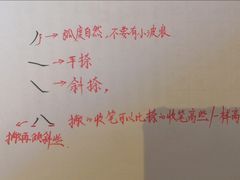 → 弧度自然，不要有小波浪
→ 平捺
→ 斜捺。
八 → 撇的收笔可以比捺的收笔高些/一样高
撇再倾斜些